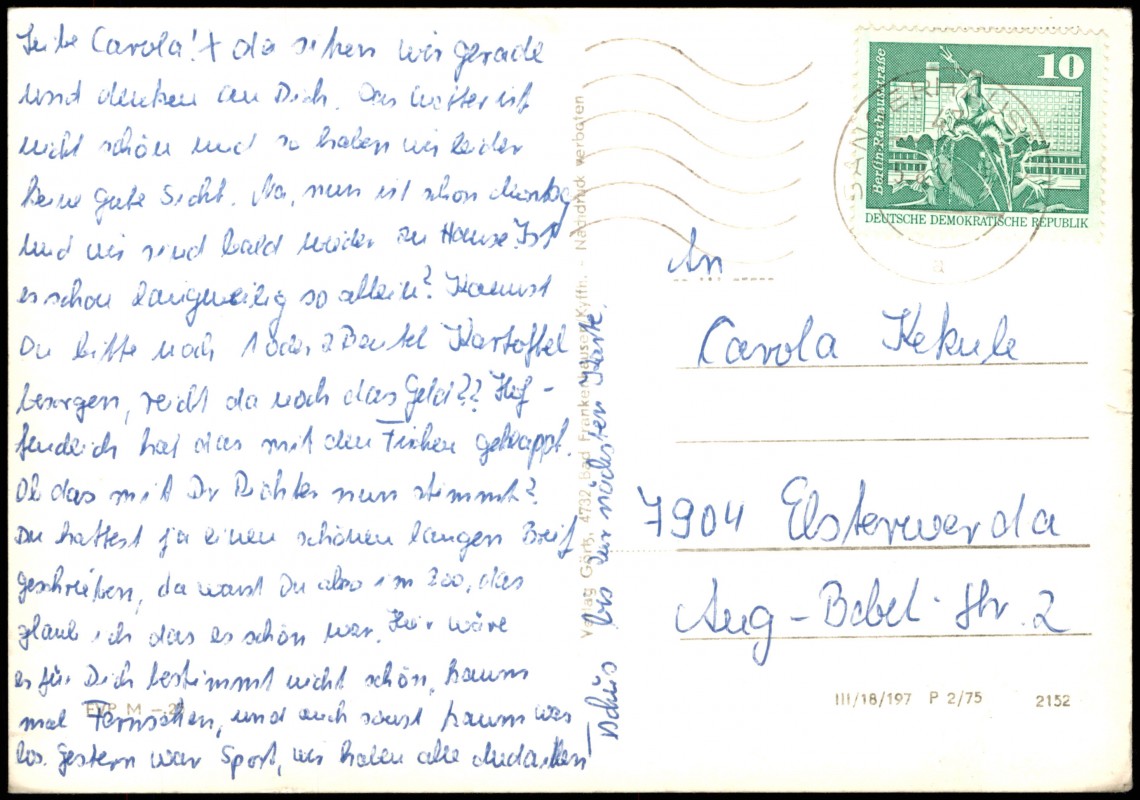 Liebe Carola! + da sitzen wir gerade
und denken an Dich. Das Wetter ist
nicht schön und so haben wir leider
keine gute Sicht. Na, nun ist schon
und wir sind bald wieder zu Hause. Ist
es schon langweilig so allein? Kannst
Du bitte noch 1 oder 2 Beutel Kartoffel
besorgen, reicht da noch das Geld?? Hof-
fendlich hat das mit den Fischen geklappt.
Ob das mit Dr Richter nun stimmt?
Du hattest ja einen schönen langen Brief
geschrieben, da warst Du also im Zoo, das
glaub ich das es schön war. Hier wäre
es für Dich bestimmt nicht schön, kaum
mal Fernsehen, und auch sonst kaum was
los. Gestern war Sport, wir haben alle
Tschüs bis zur nächsten Karte.
EVP M
Verlag Görtz, 4732 Bad Frankenhausen Kyffh. - Nachdruck verboten
10
Berlin-Rathausstraße
DEUTSCHE DEMOKRATISCHE REPUBLIK
SANGERHAUSEN
a
An
Carola Kekule
7904 Elsterwerda
Aug-Bebel-Str. 2
III/18/197 P 2/75 2152